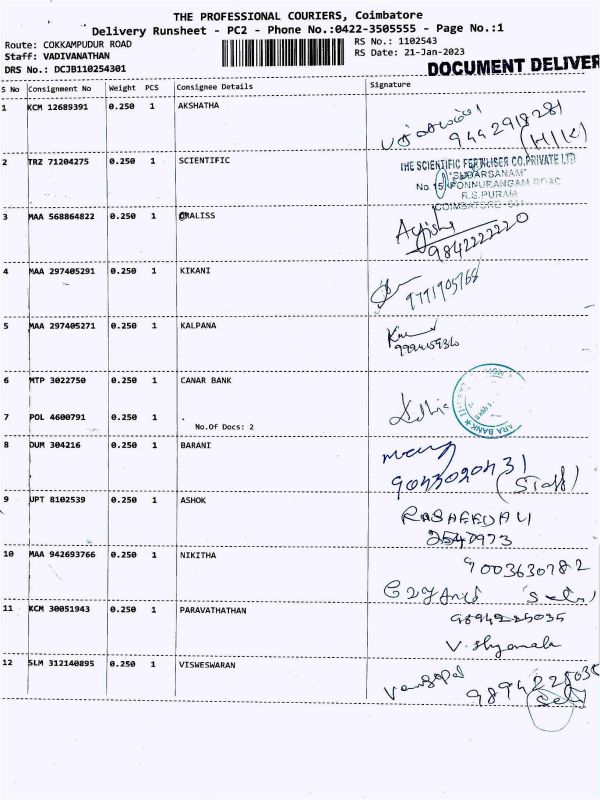 THE PROFESSIONAL COURIERS, Coimbatore
Delivery Runsheet - PC2 - Phone No.:0422-3505555 - Page No.:1
Route: COKKAMPUDUR ROAD RS No.: 1102543
Staff: VADIVANATHAN RS Date: 21-Jan-2023
DRS No.: DCJB110254301 DOCUMENT DELIVER
S No Consignment No Weight PCS Consignee Details Signature
1 KCM 12689391 0.250 1 AKSHATHA
9442918281
(H/K)
2 TRZ 71204275 0.250 1 SCIENTIFIC THE SCIENTIFIC FERTILISER CO.PRIVATE LTD
"SUDARSANAM"
No 15, PONNURANGAM ROAD
R.S.PURAM
COIMBATORE
3 MAA 568864822 0.250 1 ORALISS
9842222220
4 MAA 297405291 0.250 1 KIKANI
5 MAA 297405271 0.250 1 KALPANA
6 MTP 3022750 0.250 1 CANAR BANK
ARA BANK
7 POL 4600791 0.250 1
No.Of Docs: 2
8 DUM 304216 0.250 1 BARANI
9043020431
(Staff)
9 UPT 8102539 0.250 1 ASHOK
10 MAA 942693766 0.250 1 NIKITHA 9003630782
11 KCM 30051943 0.250 1 PARAVATHATHAN 9894225035
V. Shyamala
12 SLM 312140895 0.250 1 VISWESWARAN Vengopal
9894225035